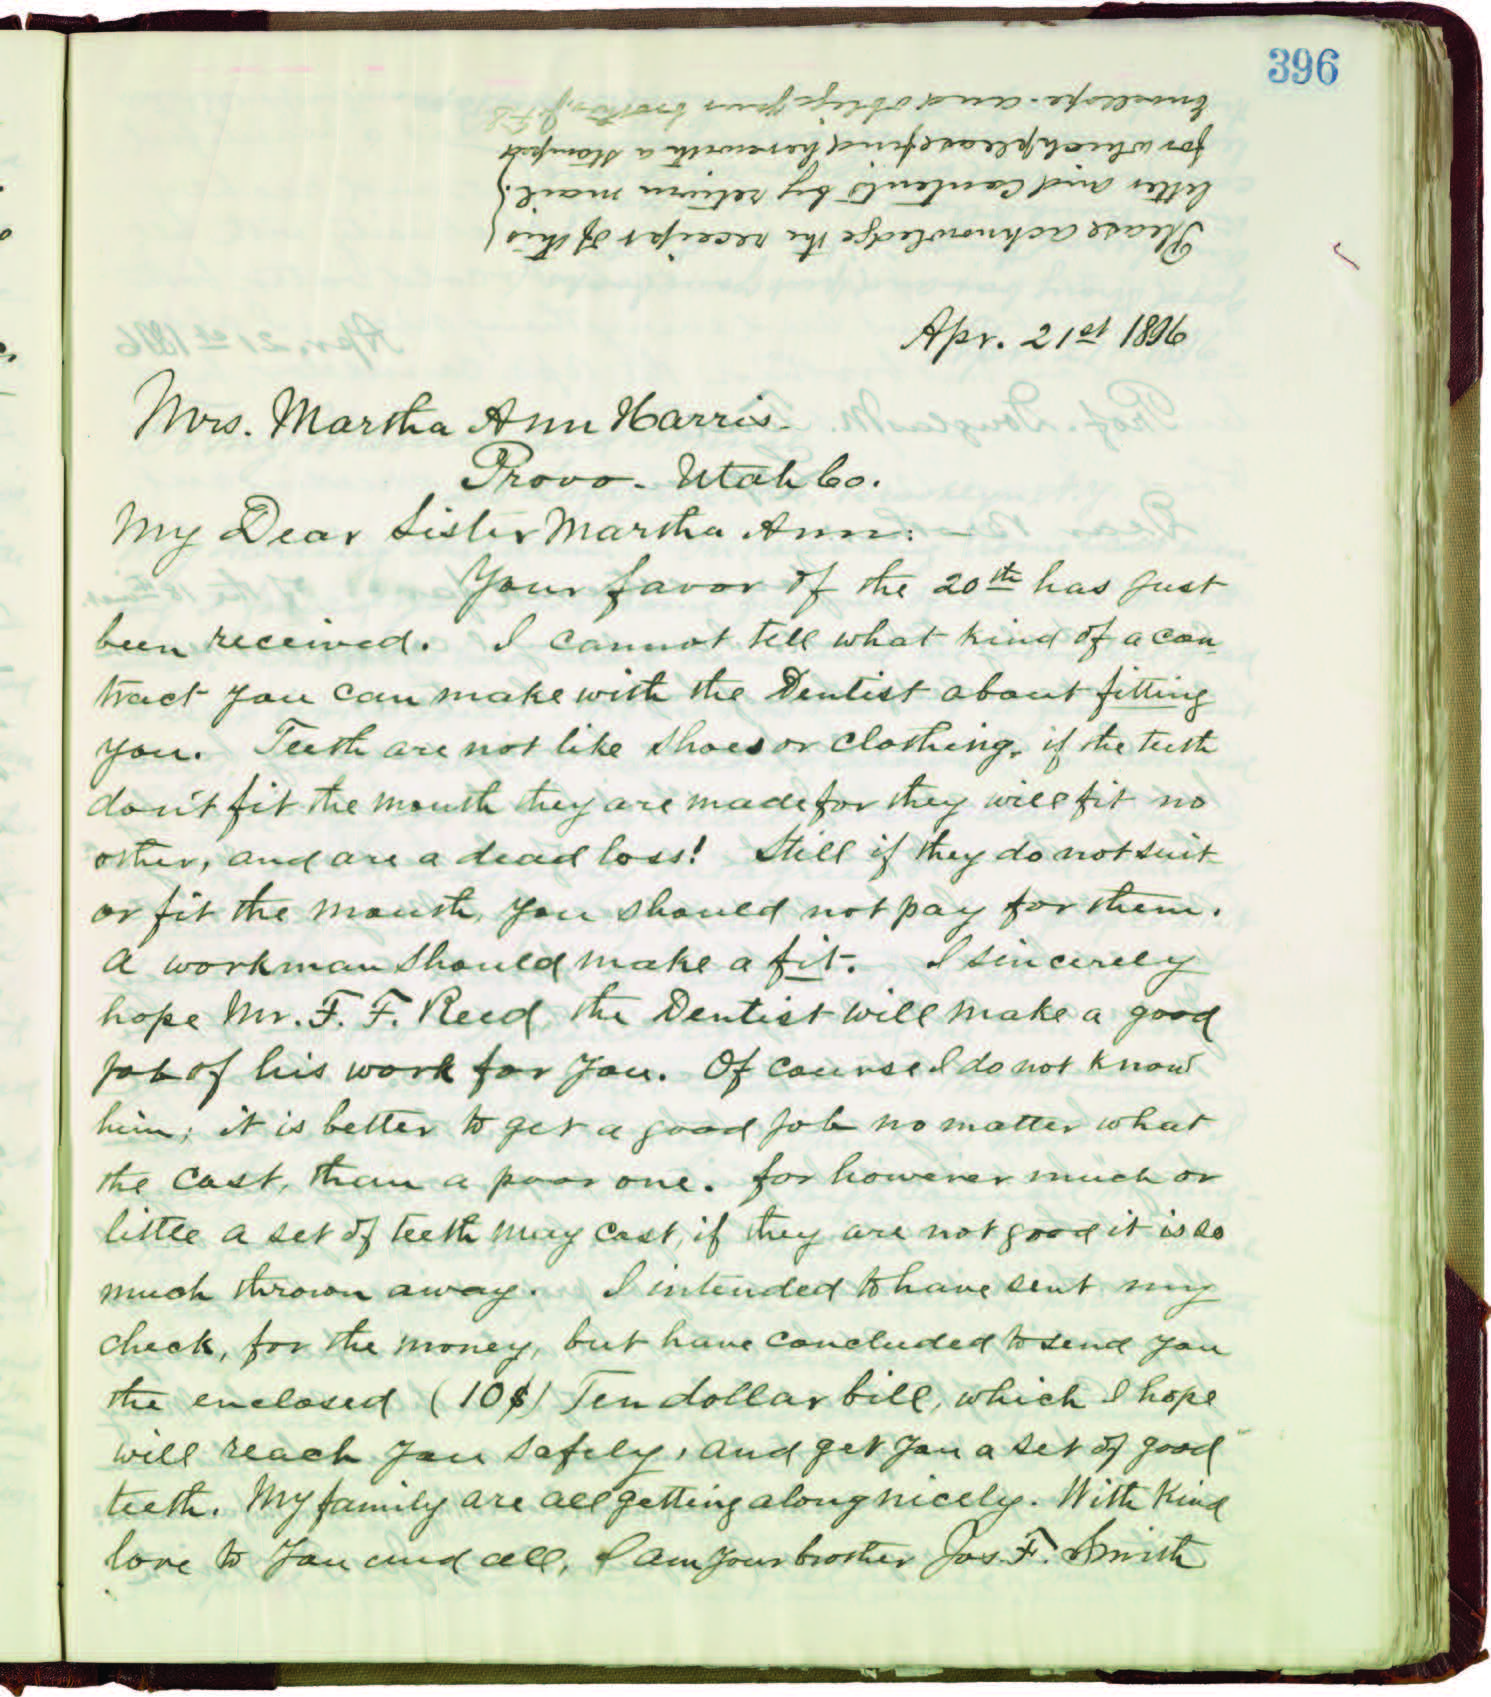 396
Please acknowledge the receipt of this
letter and contents by return mail.
for which please find herewith a stamped
Envellope. and oblige your brother, J. F. S.
Apr. 21st 1896
Mrs. Martha Ann Harris.
Provo. Utah Co.
My Dear Sister Martha Ann:
Your favor of the 20th has just
been received. I cannot tell what kind of a con
tract you can make with the Dentist about fitting
you. Teeth are not like shoes or clothing, if the teeth
don't fit the mouth they are made for they will fit no
other, and are a dead loss! Still if they do not suit
or fit the mouth, you should not pay for them.
A workman should make a fit. I sincerely
hope Mr. F. F. Reed, the Dentist will make a good
job of his work for you. Of course I do not know
him; it is better to get a good job no matter what
the cost, than a poor one. for however much or
little a set of teeth may cost, if they are not good it is so
much thrown away. I intended to have sent my
check, for the money, but have concluded to send you
the enclosed (10$) Ten dollar bill, which I hope
will reach you safely, and get you a set of good
teeth. My family are all getting along nicely. With Kind
love to You and all, I am your brother Jos. F. Smith